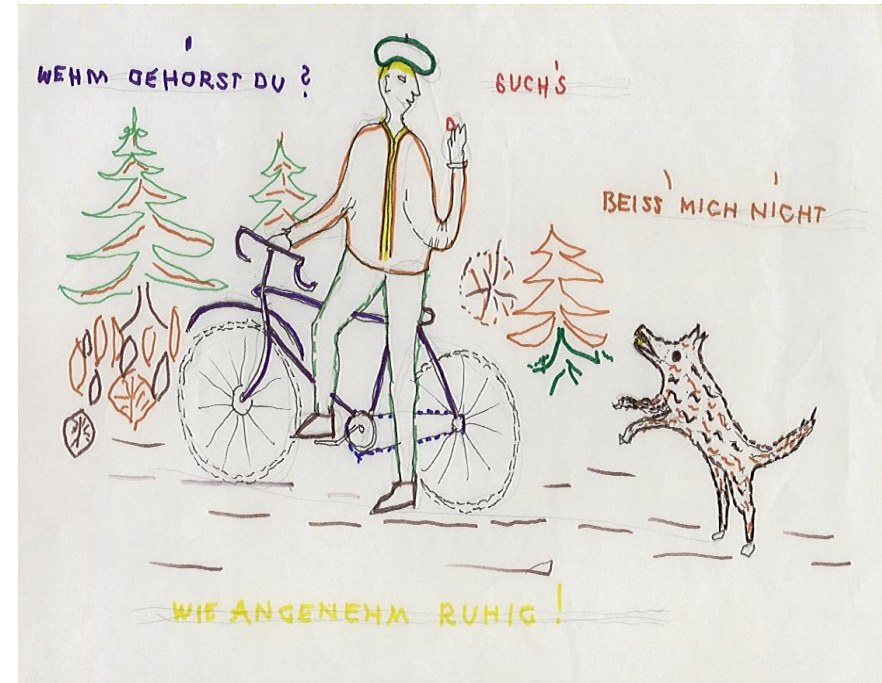 WEHM GEHÖRST DU ?
GUCH'S
BEISS' MICH NICHT
WIE ANGENEHM RUHIG !